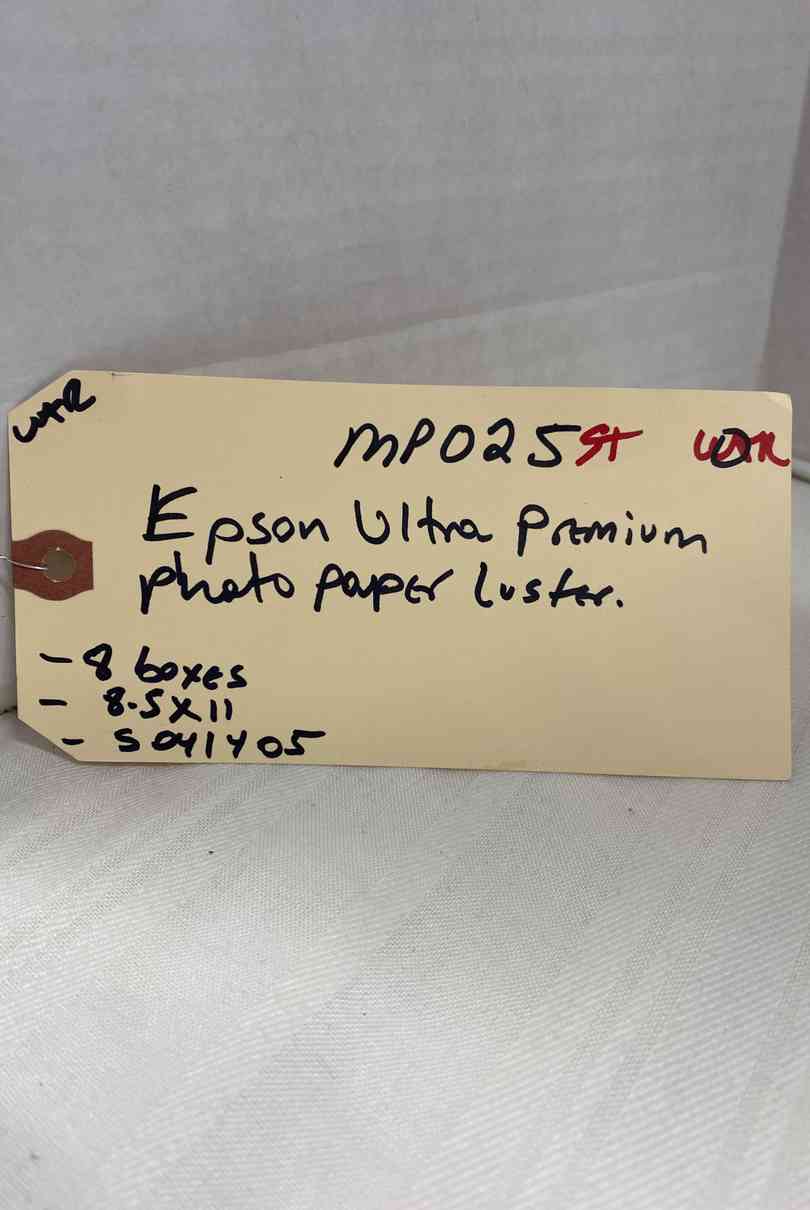 WAR
MP025 ST WAR
Epson Ultra Premium
photo paper luster.
- 8 boxes
- 8.5X11
- S041405